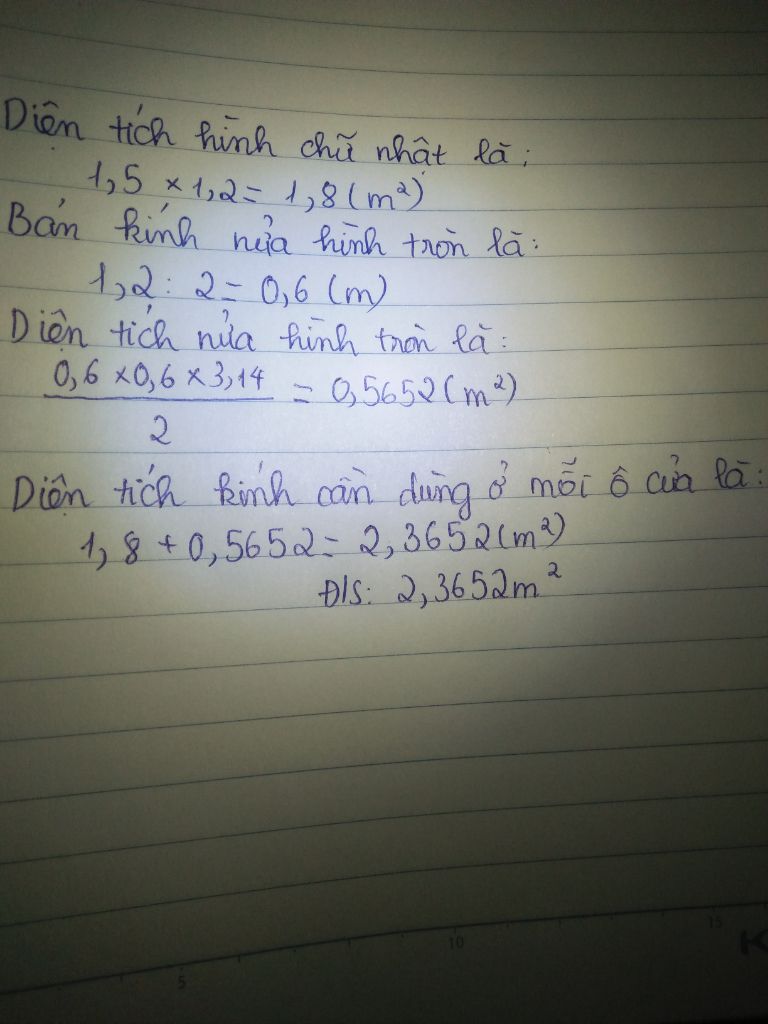 Diện tích hình chữ nhật là:
1,5 × 1,2 = 1,8 (m²)
Bán kính nửa hình tròn là:
1,2 : 2 = 0,6 (m)
Diện tích nửa hình tròn là:
0,6 × 0,6 × 3,14 / 2 = 0,5652 (m²)
Diện tích kính cần dùng ở mỗi ô cửa là:
1,8 + 0,5652 = 2,3652 (m²)
Đ/S: 2,3652m²
5 10 15 K